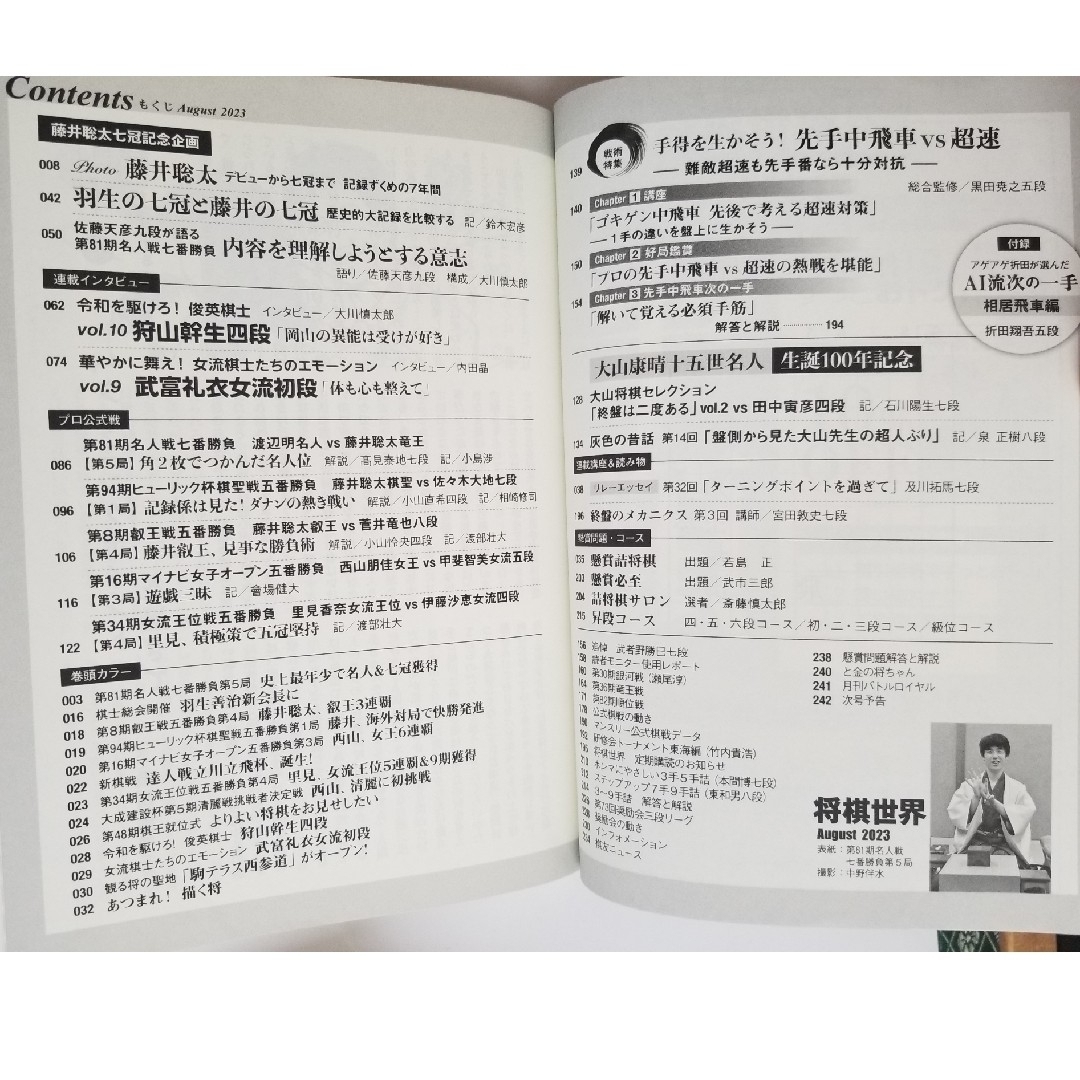 Contents もくじ August 2023
藤井聡太七冠記念企画
008 Photo 藤井聡太 デビューから七冠まで 記録ずくめの7年間
042 羽生の七冠と藤井の七冠 歴史的大記録を比較する 記/鈴木宏彦
050 佐藤天彦九段が語る
第81期名人戦七番勝負 内容を理解しようとする意志
語り/佐藤天彦九段 構成/大川慎太郎
連載インタビュー
062 令和を駆けろ! 俊英棋士 インタビュー/大川慎太郎
vol.10 狩山幹生四段「岡山の異能は受けが好き」
074 華やかに舞え! 女流棋士たちのエモーション インタビュー/内田晶
vol.9 武富礼衣女流初段「体も心も整えて」
プロ公式戦
第81期名人戦七番勝負 渡辺明名人 vs 藤井聡太竜王
086 【第5局】角2枚でつかんだ名人位 解説/髙見泰地七段 記/小島渉
第94期ヒューリック杯棋聖戦五番勝負 藤井聡太棋聖 vs 佐々木大地七段
096 【第1局】記録係は見た! ダナンの熱き戦い 解説/小山直希四段 記/相崎修司
第8期叡王戦五番勝負 藤井聡太叡王 vs 菅井竜也八段
106 【第4局】藤井叡王、見事な勝負術 解説/小山怜央四段 記/渡部壮大
第16期マイナビ女子オープン五番勝負 西山朋佳女王 vs 甲斐智美女流五段
116 【第3局】遊戯三昧 記/會場健大
第34期女流王位戦五番勝負 里見香奈女流王位 vs 伊藤沙恵女流四段
122 【第4局】里見、積極策で五冠堅持 記/渡部壮大
巻頭カラー
003 第81期名人戦七番勝負第5局 史上最年少で名人&七冠獲得
016 棋士総会開催 羽生善治新会長に
018 第8期叡王戦五番勝負第4局 藤井聡太、叡王3連覇
019 第94期ヒューリック杯棋聖戦五番勝負第1局 藤井、海外対局で快勝発進
020 第16期マイナビ女子オープン五番勝負第3局 西山、女王6連覇
022 新棋戦 達人戦立川立飛杯、誕生!
023 第34期女流王位戦五番勝負第4局 里見、女流王位5連覇&9期獲得
024 大成建設杯第5期清麗戦挑戦者決定戦 西山、清麗に初挑戦
026 第48期棋王就位式 よりよい将棋をお見せしたい
028 令和を駆けろ! 俊英棋士 狩山幹生四段
029 女流棋士たちのエモーション 武富礼衣女流初段
030 観る将の聖地「駒テラス西参道」がオープン!
032 あつまれ! 描く将
戦術特集
139 手得を生かそう! 先手中飛車 vs 超速
― 難敵超速も先手番なら十分対抗 ―
総合監修/黒田尭之五段
Chapter 1 講座
140 「ゴキゲン中飛車 先後で考える超速対策」
― 1手の違いを盤上に生かそう ―
Chapter 2 好局鑑賞
150 「プロの先手中飛車 vs 超速の熱戦を堪能」
Chapter 3 先手中飛車次の一手
154 「解いて覚える必須手筋」
解答と解説 ………… 194
付録
アゲアゲ折田が選んだ
AI流次の一手
相居飛車編
折田翔吾五段
大山康晴十五世名人 生誕100年記念
128 大山将棋セレクション
「終盤は二度ある」vol.2 vs 田中寅彦四段 記/石川陽生七段
134 灰色の昔話 第14回「盤側から見た大山先生の超人ぶり」 記/泉 正樹八段
連載講座&読み物
038 リレーエッセイ 第32回「ターニングポイントを過ぎて」及川拓馬七段
196 終盤のメカニクス 第3回 講師/宮田敦史七段
懸賞問題・コース
035 懸賞詰将棋 出題/若島 正
懸賞必至 出題/武市三郎
204 詰将棋サロン 選者/斎藤慎太郎
215 昇段コース 四・五・六段コース/初・二・三段コース/級位コース
156 追悼 武者野勝巳七段
158 読者モニター使用レポート
160 第30期銀河戦(瀬尾淳)
164 第36期竜王戦
171 第82期順位戦
178 公式棋戦の動き
190 マンスリー公式棋戦データ
研修会トーナメント東海編(竹内貴浩)
将棋世界 定期購読のお知らせ
ホンマにやさしい3手5手詰(本間博七段)
ステップアップ7手9手詰(東和男八段)
3~9手詰 解答と解説
第73回奨励会三段リーグ
奨励会の動き
インフォメーション
棋友ニュース
238 懸賞問題解答と解説
240 と金の将ちゃん
241 月刊バトルロイヤル
242 次号予告
将棋世界
August 2023
表紙:第81期名人戦
七番勝負第5局
撮影:中野伴水